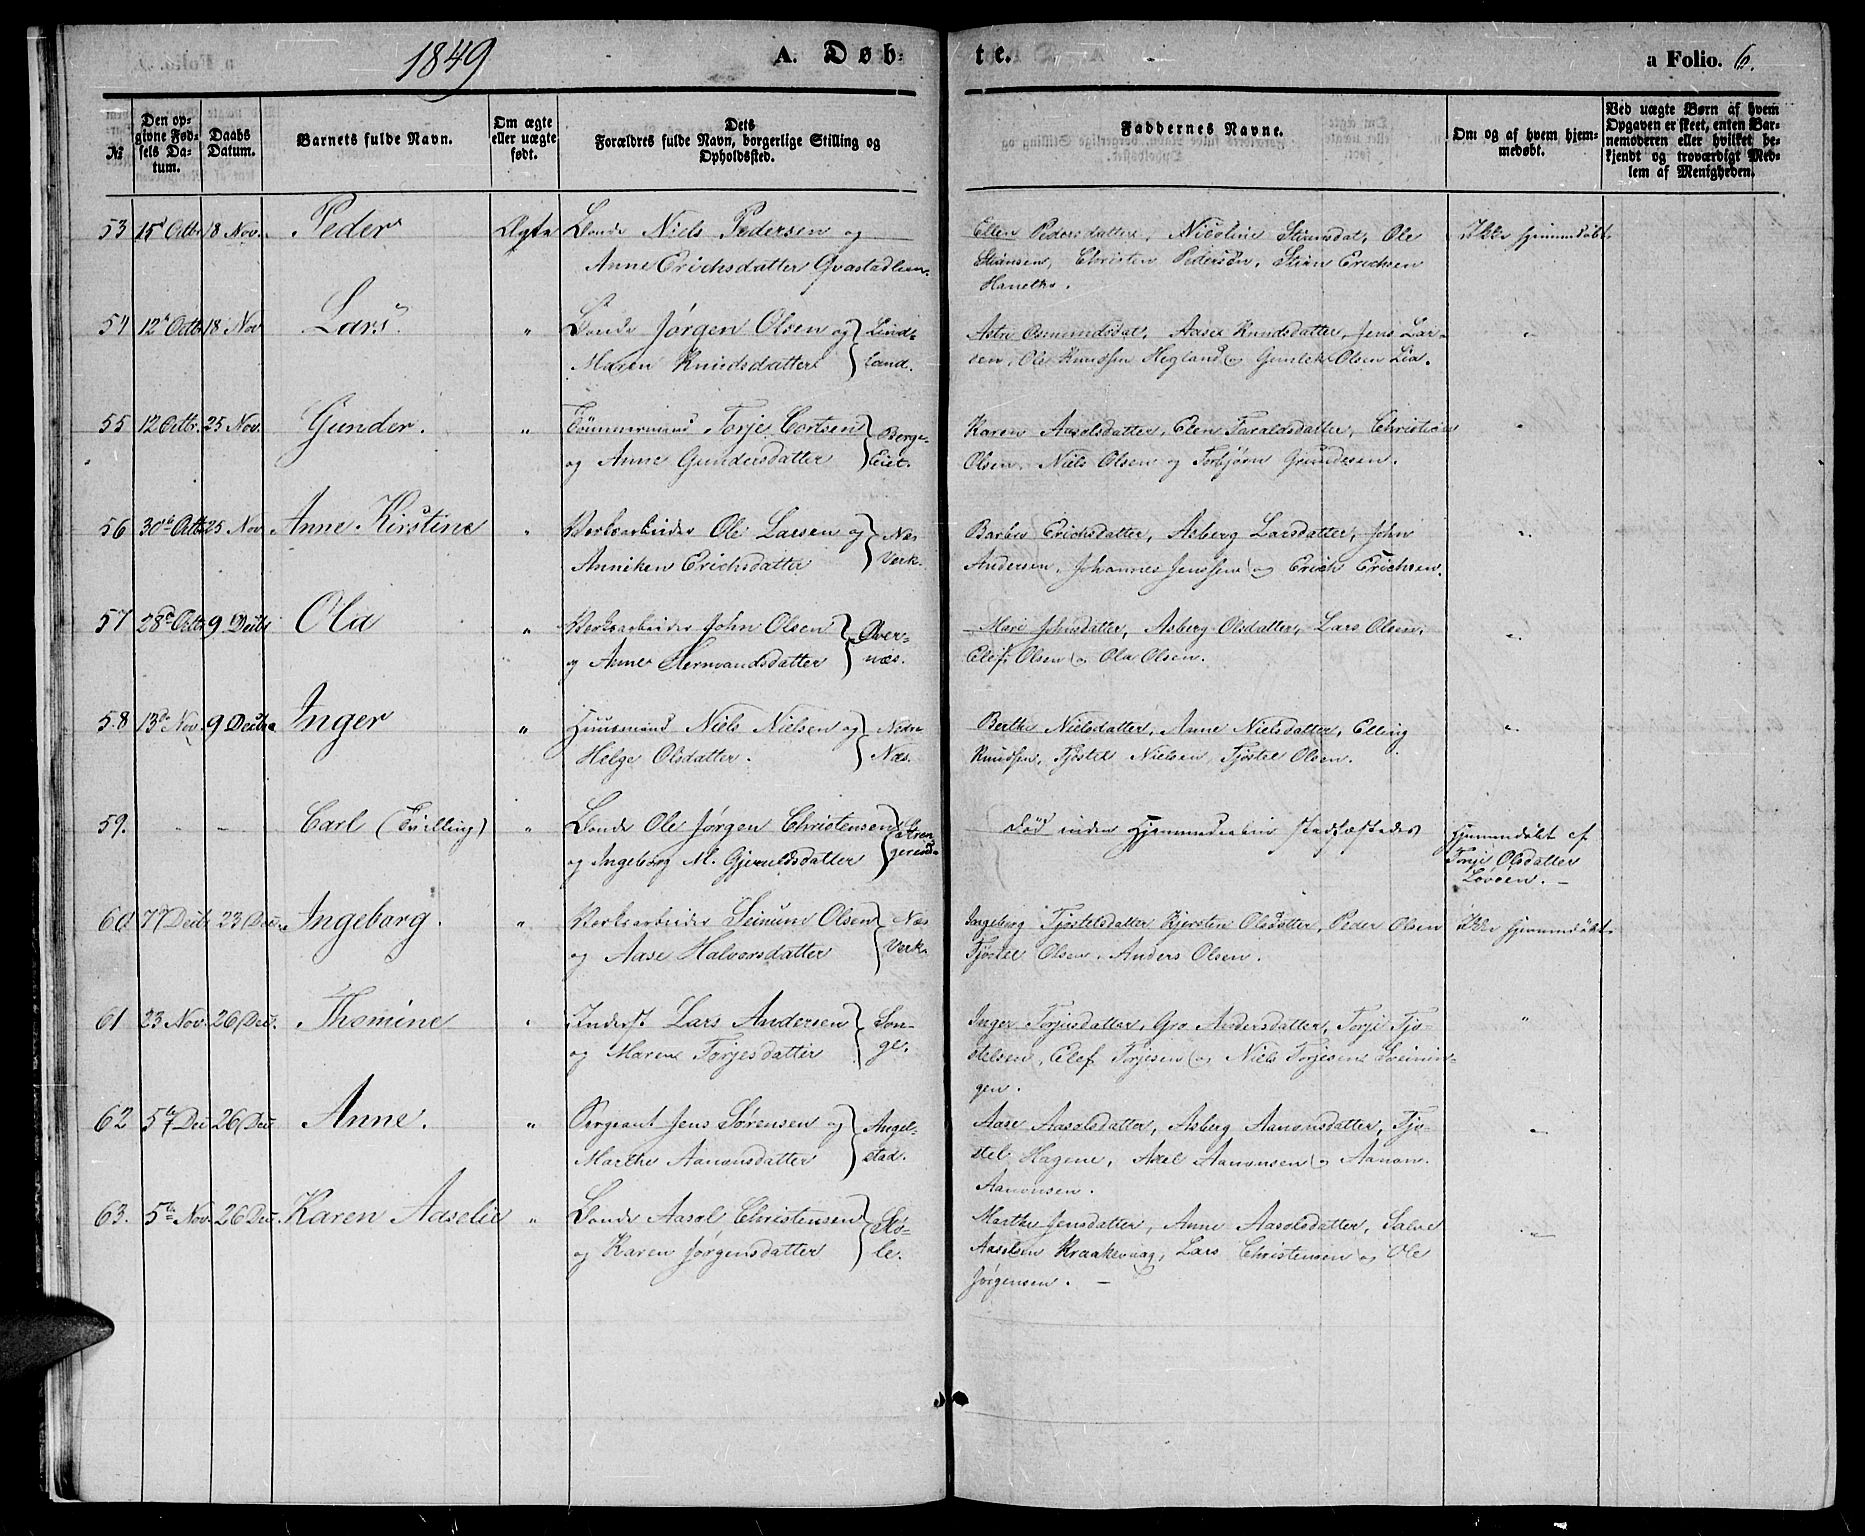 1849 A. Døb-te. a Folio. 6.
№
Den op-
givne Fød-
sels Da-
tum.
Daabs
Datum.
Barnets fulde Navn.
Om ægte
eller uægte
født.
Dets
Forældres fulde Navn, borgerlige Stilling og
Opholdssted.
Faddernes Navne.
Om og af hvem hjem-
medøbt.
Ved uægte Børn af hvem
Opgaven er skeet, enten Bar-
nemoderen eller hvilket be-
kjendt og troværdigt Med-
lem af Menigheden.
53 15d Octbr 18 Nov. Peder Ægte Bonde Niels Pedersen og Ellen Pedersdatter, Nicoline Stiansdat, Ole Ikke hjemmedøbt
Anne Erichsdatter Stiansen, Christen Pedersen, Stian Erichsen
54 12te Octbr 18 Nov Lars. " Bonde Jørgen Olsen og Lind- Osmundsdat, Aase Knudsdatter, Jens Lar- "
Maren Knudsdatter land. sen, Ole Knudsen Hegland og Gunlek Olsen Lia.
55 12 Octbr. 25 Nov. Gunder. " Tømmermand Torje Cortsen Berge- Karen Aasolsdatter, Elen Taraldsdatter, Christian "
og Anne Gundersdatter Eiet. Olsen, Niels Olsen og Torbjørn Gundersen.
56 30te Octb 25 Nov Anne Kirstine " Verksarbeider Ole Larsen og Næs Barbro Erichsdatter, Asberg Larsdatter, John "
Anniken Erichsdatter Verk. Andersen, Johannes Jenssen og Erich Erichsen.
57 28de Octb 9 Decbr Ola " Verksarbeider John Olsen Over- Mari Johnsdatter, Asberg Olsdatter, Lars Olsen, "
og Anne Hermandsdatter næs. Elef Olsen og Ola Olsen.
58 13de Nov. 9 Decbr Inger " Huusmand Niels Nielsen og Nedre Berthe Nielsdatter, Anne Nielsdatter, Elling "
Helge Olsdatter. Næs. Knudsen, Tjøstel Nielsen, Tjøstel Olsen.
59. - - Carl (Tvilling) " Bonde Ole Jørgen Christensen Død inden Hjemmedaaben stadfæstedes Hjemmedøbt af
og Ingeborg M. Gjeruldsdatter Torje Olsdatter
60 7d Decbr 23 Dec. Ingeborg. " Verksarbeider Olsen Næs Ingeborg Tjøstelsdatter Kjersten Olsdatter, Peder Olsen Ikke hjemmedøbt.
og Aase Halvorsdatter Verk. Tjøstel Olsen, Anders Olsen.
61 23 Nov. 26 Dec. Thomine " Inderst Lars Andersen Son- Inger Torjesdatter, Gro Andersdatter, Torje Tjø- "
og Maren Torjesdatter ge. stelsen, Elef Torjesen og Niels Torjesen
gen.
62 5te Dec 26 Dec. Anne. " Sergeant Jens Sørensen og Angel- Aase Aasolsdatter, Asberg Aanonsdatter, Tjø- "
Marthe Aanonsdatter stad. stel Hagene, Axel Aanonsen og Aanon
Aanonsen.
63. 5te Nov. 26 Dec. Karen Aaselie " Bonde Aasol Christensen Sko- Marthe Jensdatter, Anne Aasolsdatter, Salve "
og Karen Jørgensdatter le. Aaselsen Kraakevaag, Lars Christensen og Ole
Jørgensen. -